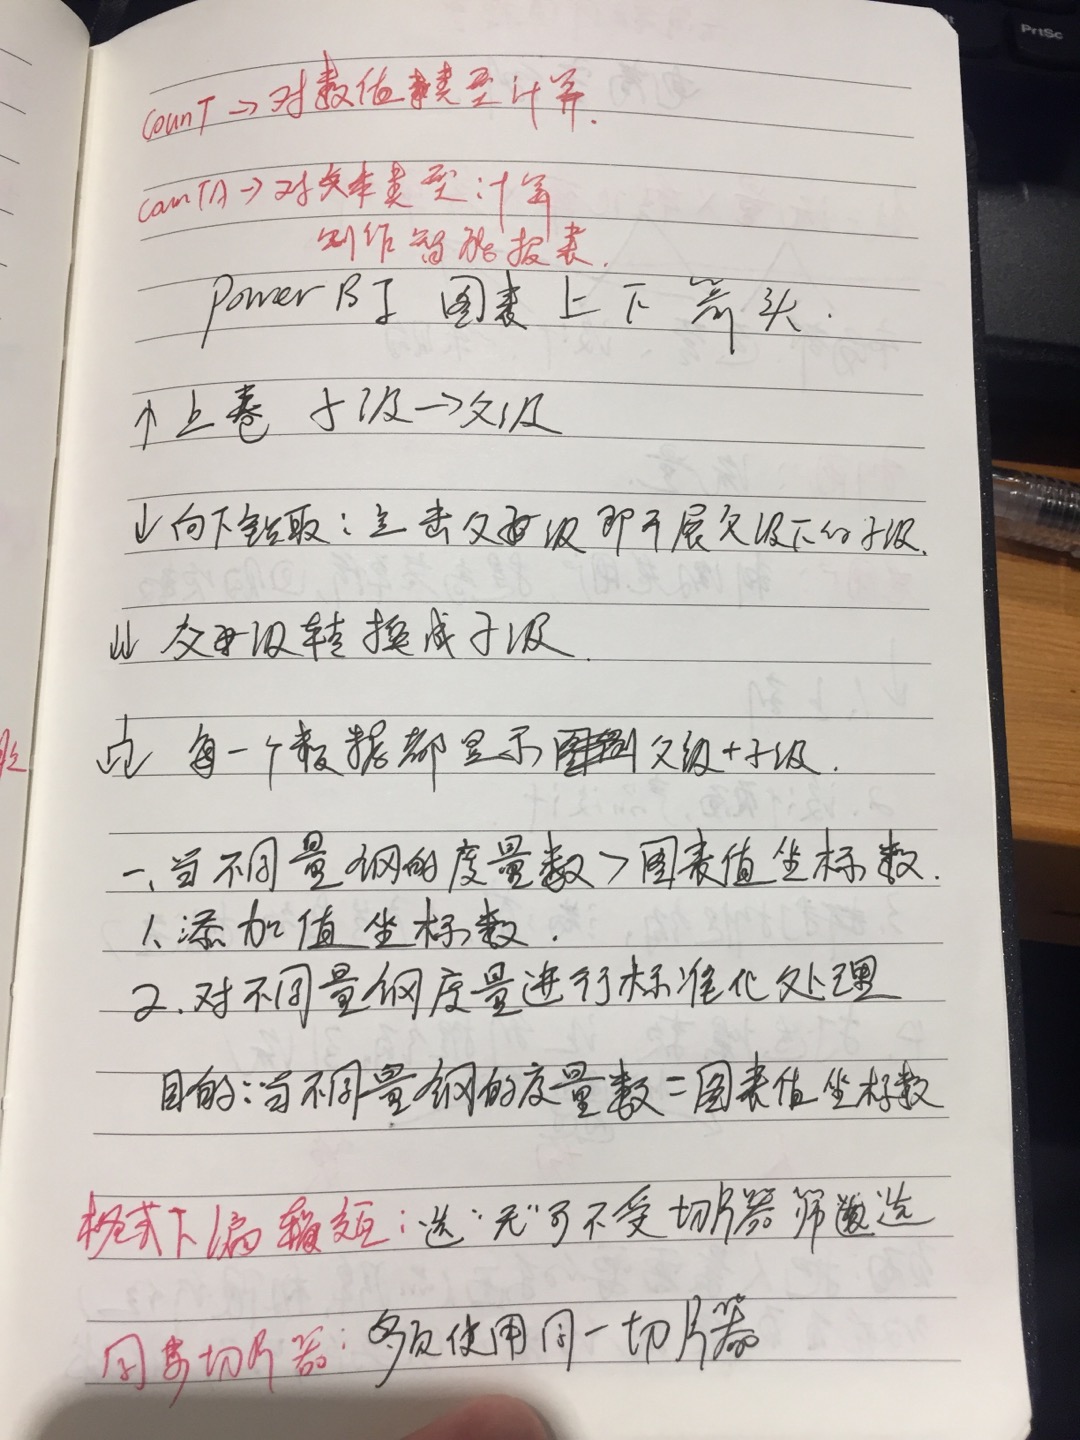 count → 对数值类型计算.
countA → 对文本类型计算
制作智能报表.
Power BI 图表上下箭头.
↑ 上卷 子级→父级
↓ 向下钻取:点击父级即可展父级下的子级.
⇊ 父级转换成子级.
每一个数据都显示 父级+子级.
一、当不同量纲的度量数>图表值坐标数.
1、添加值坐标数.
2.对不同量纲度量进行标准化处理
目的:当不同量纲的度量数=图表值坐标数
格式下编辑交互:选"无"可不受切片器筛选
同步切片器:多页使用同一切片器
PrtSc